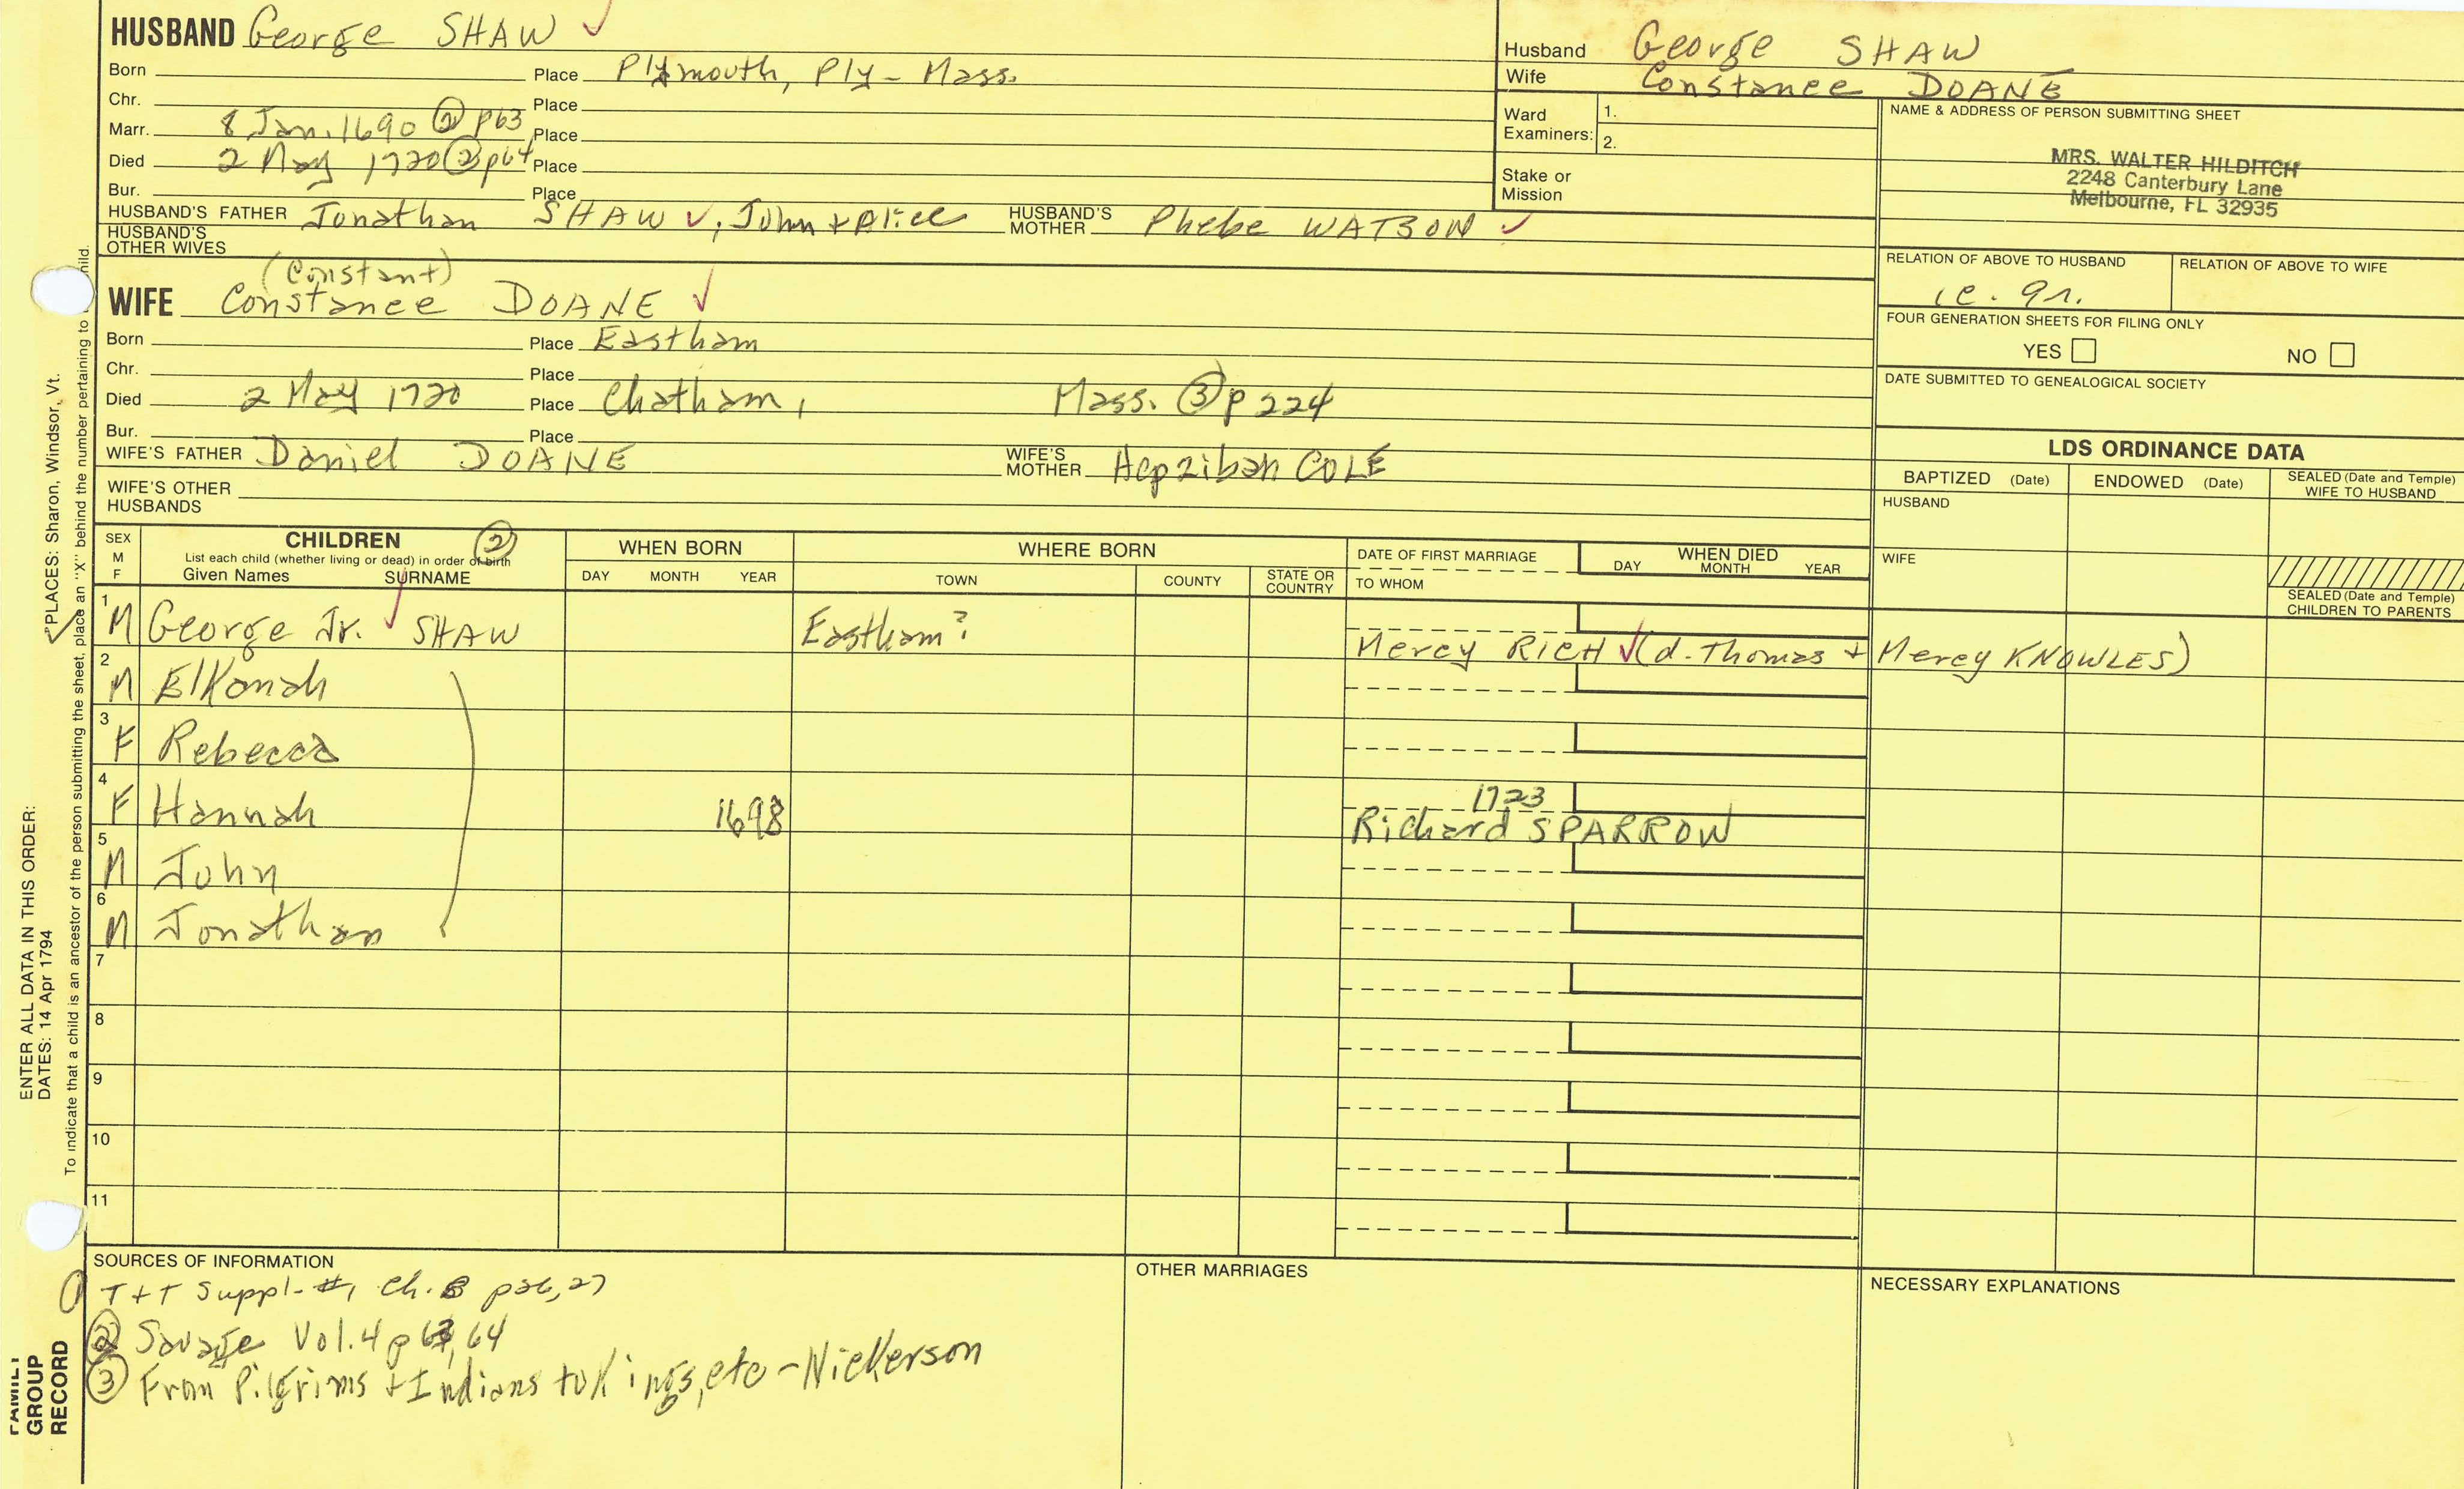 HUSBAND George SHAW ✓
Born Place Plymouth, Ply - Mass.
Chr. Place
Marr. 8 Jan. 1690 ② p63 Place
Died 2 May 1720 ② p64 Place
Bur. Place
HUSBAND'S FATHER Jonathan SHAW ✓, John + Alice HUSBAND'S MOTHER Phebe WATSON ✓
HUSBAND'S OTHER WIVES
(Constant)
WIFE Constance DOANE ✓
Born Place Eastham
Chr. Place
Died 2 May 1720 Place Chatham, Mass. ③ p 224
Bur. Place
WIFE'S FATHER Daniel DOANE WIFE'S MOTHER Hepzibah COLE
WIFE'S OTHER HUSBANDS
Husband George SHAW
Wife Constance DOANE
Ward Examiners: 1.
2.
Stake or Mission
NAME & ADDRESS OF PERSON SUBMITTING SHEET
MRS. WALTER HILDITCH
2248 Canterbury Lane
Melbourne, FL 32935
RELATION OF ABOVE TO HUSBAND RELATION OF ABOVE TO WIFE
FOUR GENERATION SHEETS FOR FILING ONLY
YES NO
DATE SUBMITTED TO GENEALOGICAL SOCIETY
LDS ORDINANCE DATA
BAPTIZED (Date) ENDOWED (Date) SEALED (Date and Temple) WIFE TO HUSBAND
HUSBAND
WIFE
SEALED (Date and Temple) CHILDREN TO PARENTS
SEX M F CHILDREN ② WHEN BORN WHERE BORN DATE OF FIRST MARRIAGE WHEN DIED
List each child (whether living or dead) in order of birth
Given Names SURNAME DAY MONTH YEAR TOWN COUNTY STATE OR COUNTRY TO WHOM DAY MONTH YEAR
1 M George Jr. ✓ SHAW Eastham? Mercy RICH ✓ (d. Thomas + Mercy KNOWLES)
2 M Elkanah
3 F Rebecca
4 F Hannah 1698 1723 Richard SPARROW
5 M John
6 M Jonathan
7
8
9
10
11
SOURCES OF INFORMATION
T+T Suppl. #1 Ch. p26, 27
② Savage Vol. 4 p 63, 64
③ From Pilgrims + Indians to Kings, etc - Nickerson
OTHER MARRIAGES
NECESSARY EXPLANATIONS
ENTER ALL DATA IN THIS ORDER:
DATES: 14 Apr 1794
"PLACES: Sharon, Windsor, Vt.
To indicate that a child is an ancestor of the person submitting the sheet, place an "X" behind the number pertaining to child.
FAMILY GROUP RECORD